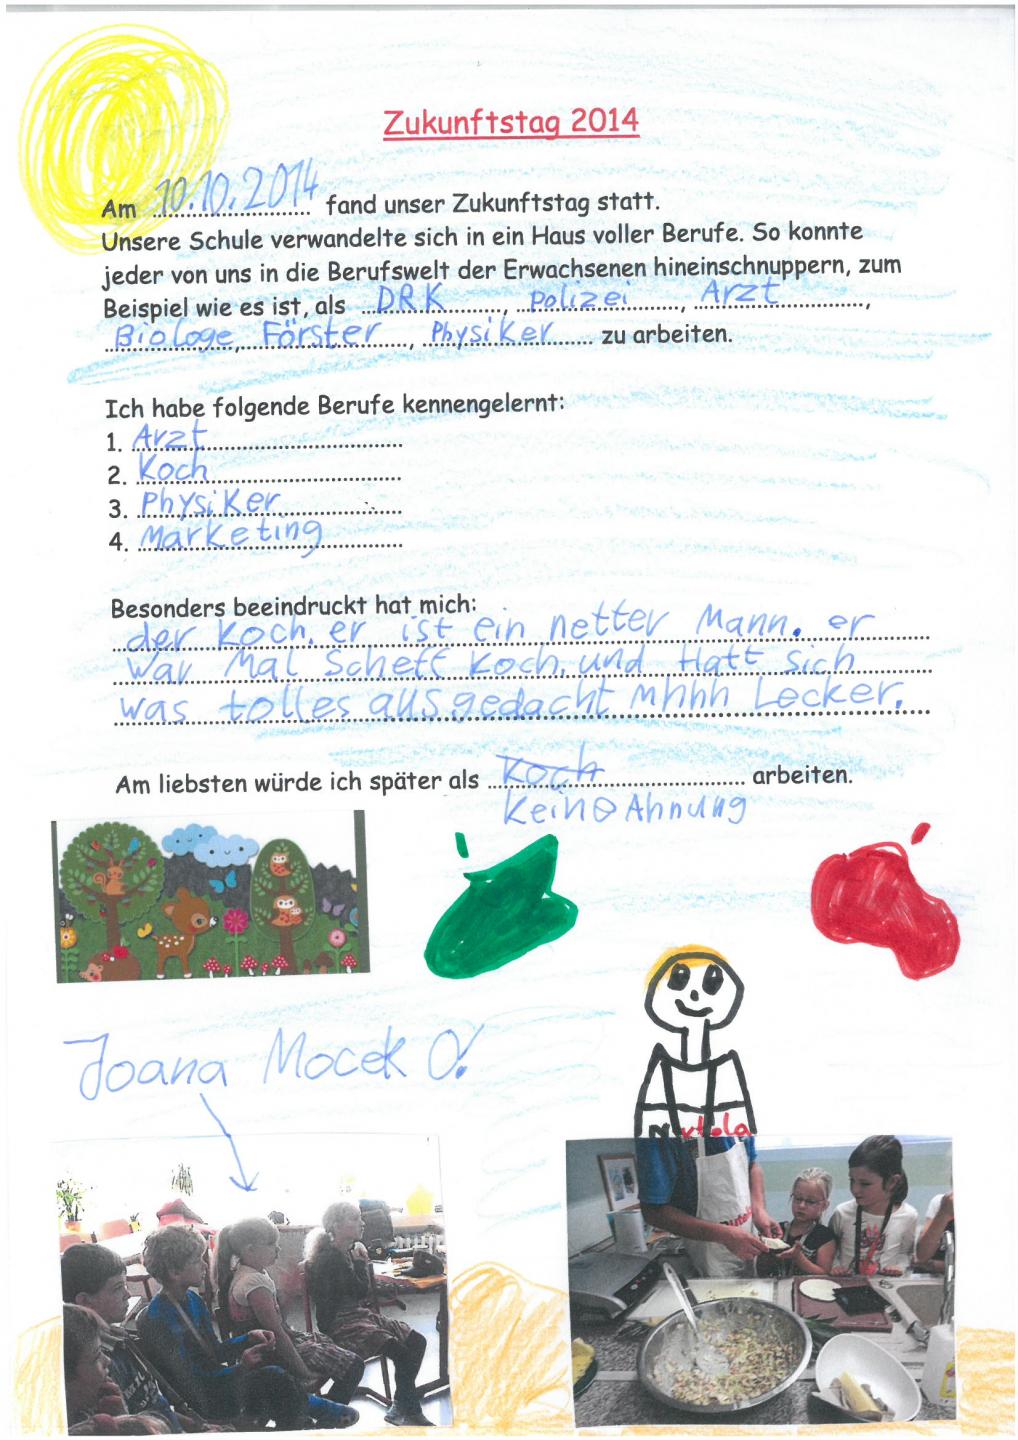 Zukunftstag 2014
Am 10.10.2014 fand unser Zukunftstag statt.
Unsere Schule verwandelte sich in ein Haus voller Berufe. So konnte
jeder von uns in die Berufswelt der Erwachsenen hineinschnuppern, zum
Beispiel wie es ist, als DRK, Polizei, Arzt,
Biologe, Förster, Physiker zu arbeiten.
Ich habe folgende Berufe kennengelernt:
1. Arzt
2. Koch
3. Physiker
4. Marketing
Besonders beeindruckt hat mich:
der Koch. er ist ein netter Mann. er
war Mal Scheff Koch. und Hatt sich
was tolles ausgedacht mhhh Lecker.
Am liebsten würde ich später als Koch arbeiten.
Keine Ahnung
Joana Mocek O!